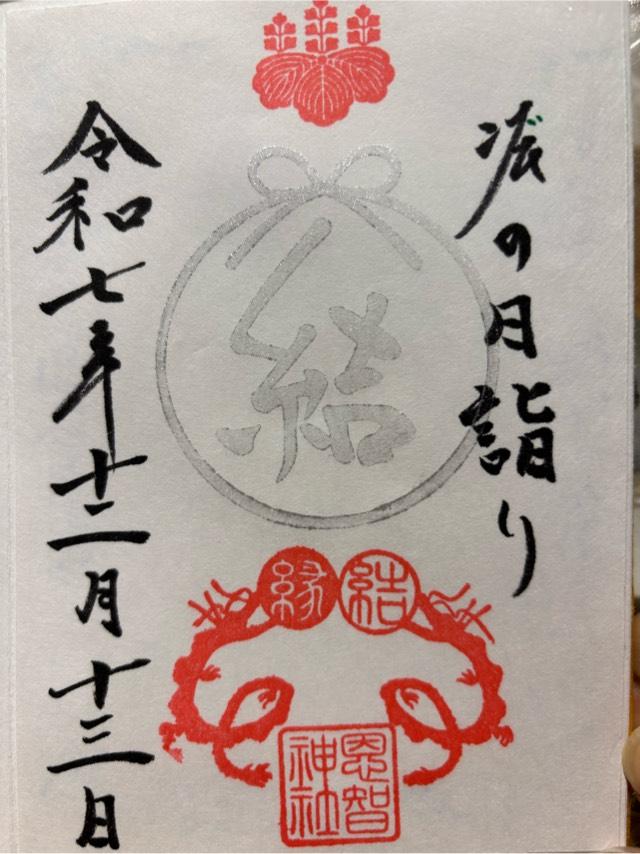 の月詣り
結
縁結
恩智
神社
令和七年十二月十三日